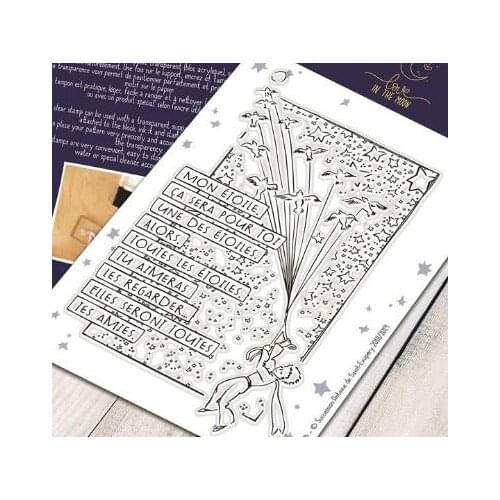 transparent, bloc acrylique,
transparence vous permet de positionner parfait
Une fois sur le support, encrez et tam
motif sur le papier.
tampon est pratique, léger, facile à ranger et à nettoyer
ou avec un produit spécial selon l'encre uti
clear stamp can be used with a transparent supp
attached to the block, ink it and stam
place your pattern very precisely and accura
stamps are very convenient, easy to sto
water or special cleaner acco
Love
IN THE MOON
MON ÉTOILE,
ÇA SERA POUR TOI
UNE DES ÉTOILES.
ALORS,
TOUTES LES ÉTOILES,
TU AIMERAS
LES REGARDER...
ELLES SERONT TOUTES
TES AMIES.
© Succession Antoine de Saint-Exupéry 2018/2019